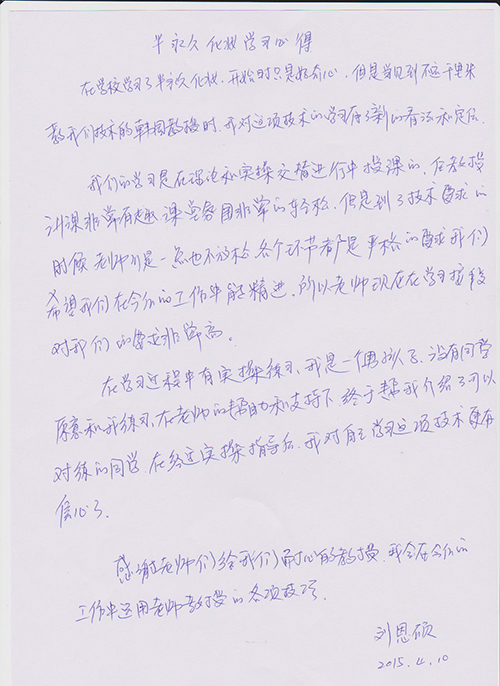 半永久化妆学习心得
在学校学习了半永久化妆，开始时只是好奇心，但是当见到不远千里来
教我们技术的韩国教授时，我对这项技术的学习有了新的看法和定位。
我们的学习是在理论和实操交替进行中授课的，任教授
讲课非常有趣 课堂氛围非常的轻松，但是到了技术要求的
时候 老师们是一点也不放松 各个环节都是严格的要求我们
希望我们在今后的工作中能精进，所以老师现在在学习阶段
对我们的要求非常高。
在学习过程中有实操练习，我是一个男孩子，没有同学
愿意和我练习，在老师的帮助和支持下 终于帮我介绍了可以
对练的同学，在经过实操指导后，我对自己学习这项技术更有
信心了。
感谢老师们给我们耐心的教授，我会在今后的
工作中运用老师教授的各项技巧。
刘恩硕
2015.4.10